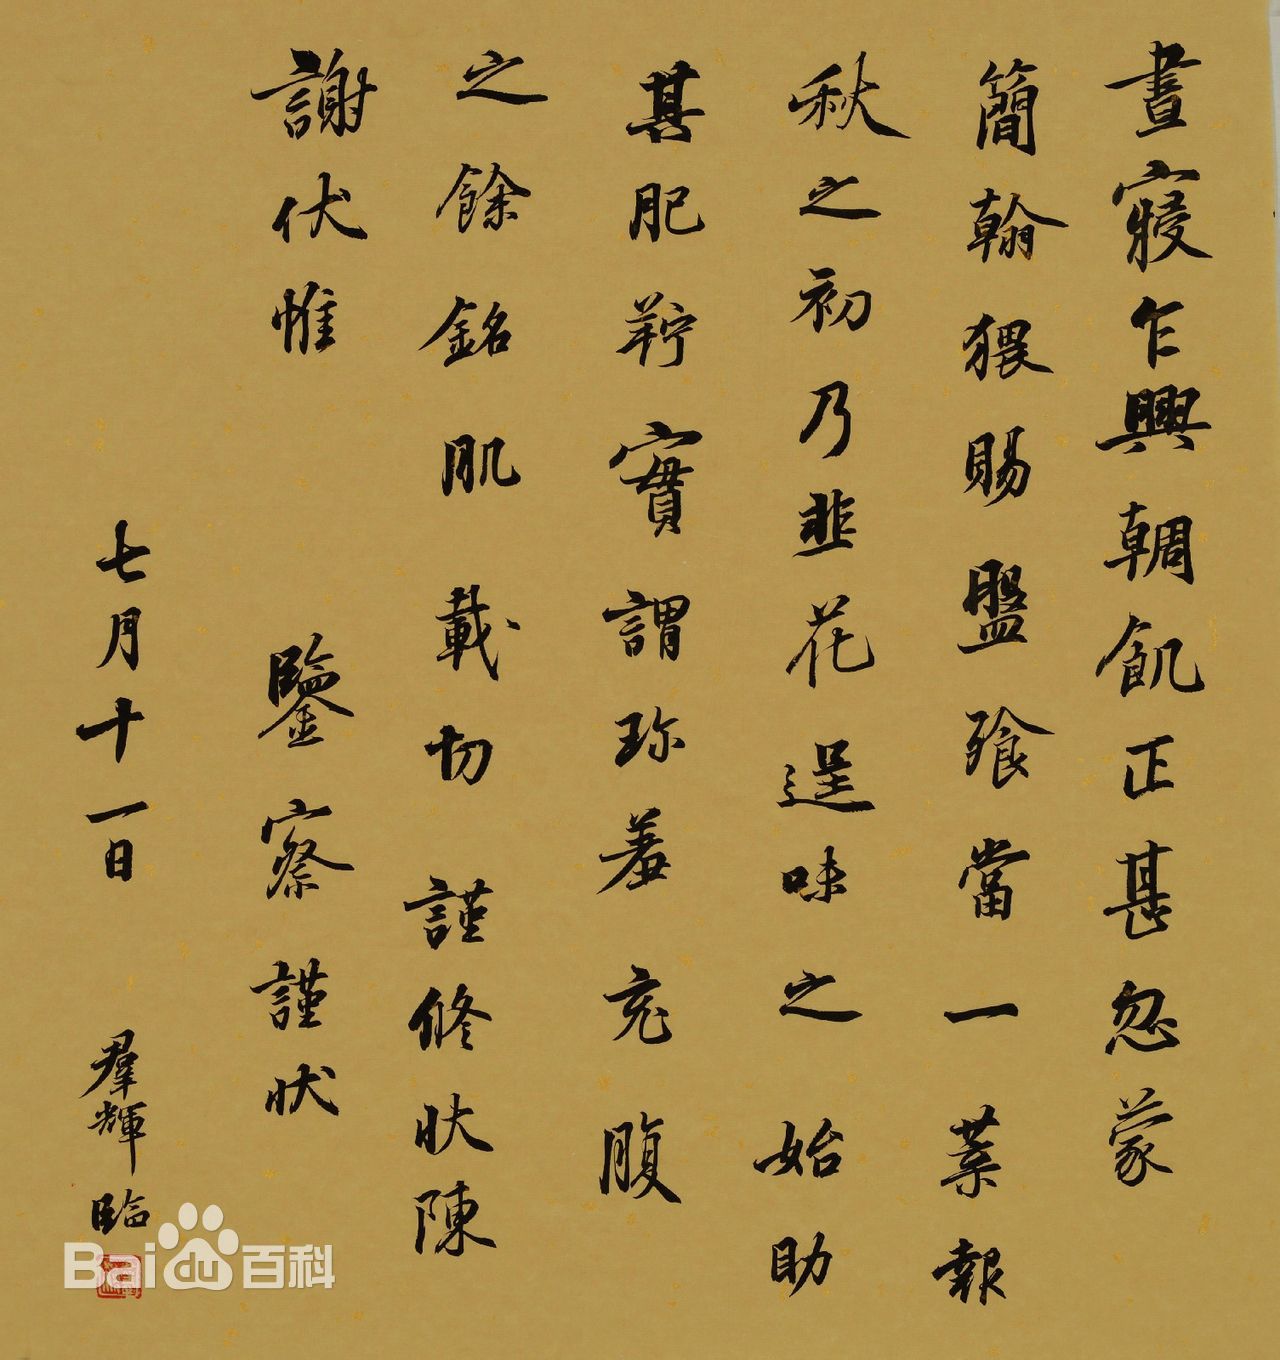 晝寢乍興輖飢正甚忽蒙
簡翰猥賜盤飧當一葉報
秋之初乃韭花逞味之始助
其肥羜實謂珍羞充腹
之餘銘肌載切謹修狀陳
謝伏惟 鑒察謹狀
七月十一日 羣輝臨
Bai百科